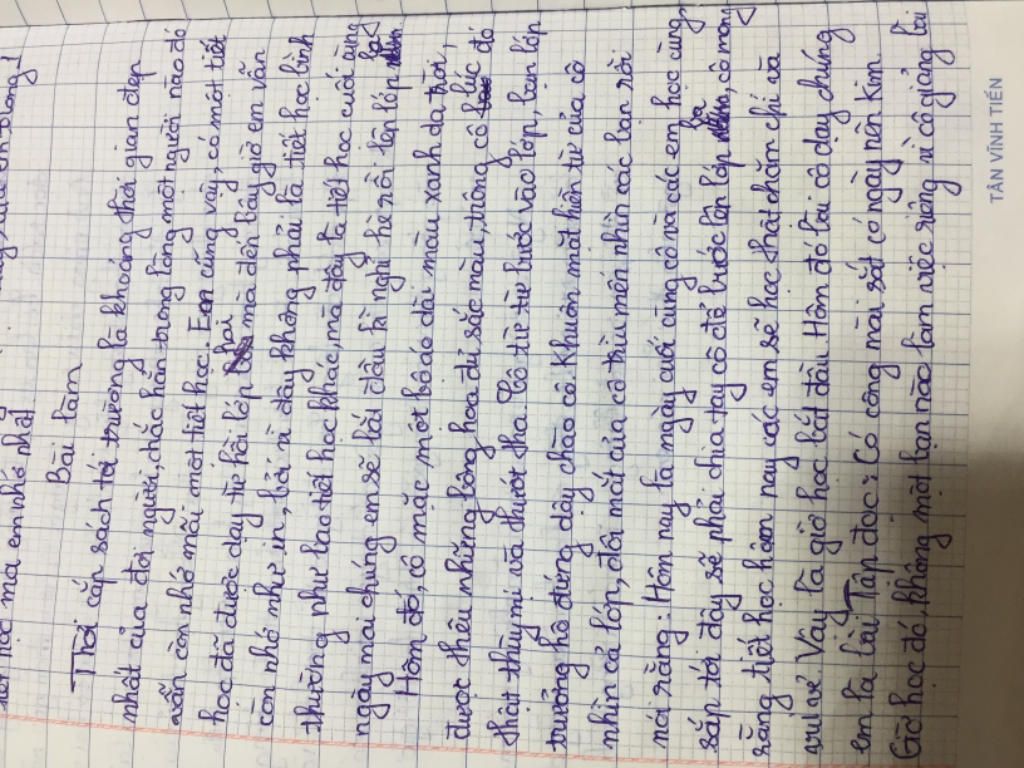 tiết học mà em nhớ nhất
Bài làm
Thời cắp sách tới trường là khoảng thời gian đẹp
nhất của đời người, chắc hẳn trong lòng một người nào đó
vẫn còn nhớ mãi một tiết học. Em cũng vậy, có một tiết
học đã được dạy từ hồi lớp hai mà đến bây giờ em vẫn
còn nhớ như in, bởi vì đây không phải là tiết học bình
thường như bao tiết học khác, mà đây là tiết học cuối cùng
ngày mai chúng em sẽ bắt đầu kì nghỉ hè rồi lên lớp ba
Hôm đó, cô mặc một bộ áo dài màu xanh da trời,
được thêu những bông hoa đủ sắc màu, trông cô lúc đó
thật thùy mị và thướt tha. Cô từ từ bước vào lớp, bạn lớp
trưởng hô đứng dậy chào cô. Khuôn mặt hiền từ của cô
nhìn cả lớp, đôi mắt của cô trìu mến nhìn các bạn rồi
nói rằng: Hôm nay là ngày cuối cùng cô và các em học cùng,
sắp tới đây sẽ phải chia tay cô để bước lên lớp ba, cô mong
rằng tiết học hôm nay các em sẽ học thật chăm chỉ và
vui vẻ. Vậy là giờ học bắt đầu. Hôm đó bài cô dạy chúng
em là bài Tập đọc: Có công mài sắt có ngày nên kim
Giờ học đó, không một bạn nào làm việc riêng vì cô giảng bài
TÂN VĨNH TIẾN